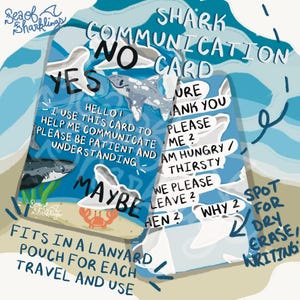 Sea of
Sharklings
SHARK
COMMUNICATION
CARD
NO
YES
HELLO!
I USE THIS CARD TO
HELP ME COMMUNICATE
PLEASE BE PATIENT AND
UNDERSTANDING
MAYBE
URE
ANK YOU
PLEASE
ME ?
AM HUNGRY /
THIRSTY
WE PLEASE
LEAVE ?
HEN ?
WHY ?
SPOT
FOR
DRY
ERASE/
WRITING
FITS IN A LANYARD
POUCH FOR EACH
TRAVEL AND USE